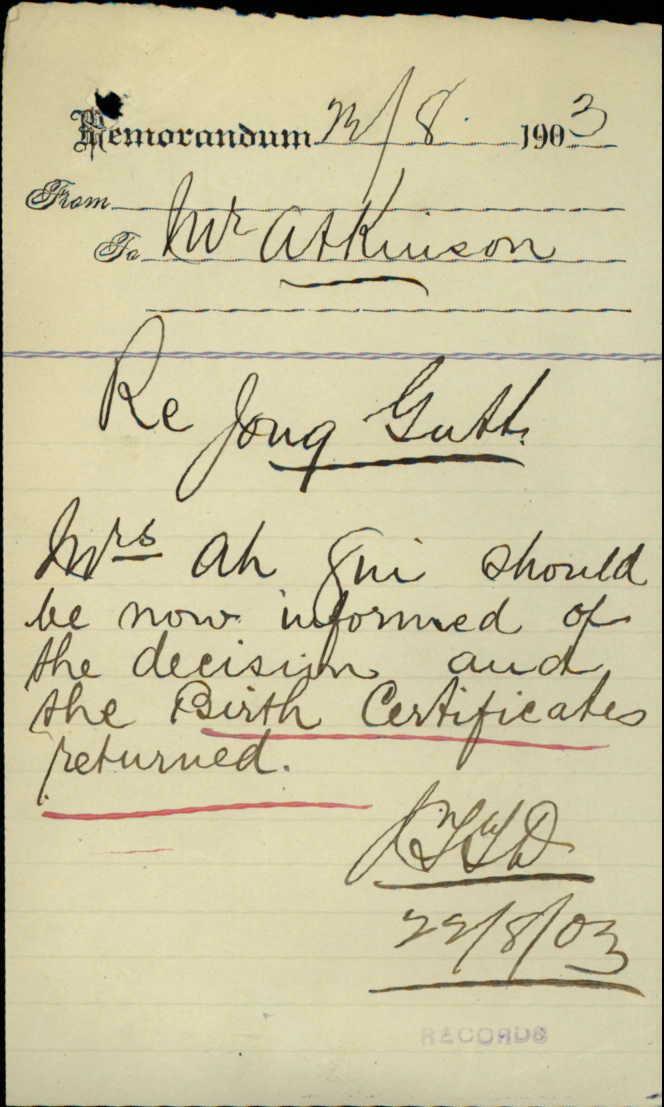 Memorandum 22/8. 1903
From
To Mr Atkinson
Re Jong Gutt.
Mrs Ah Gni should
be now informed of
the decision and
the Birth Certificates
returned.
22/8/03
RECORDS